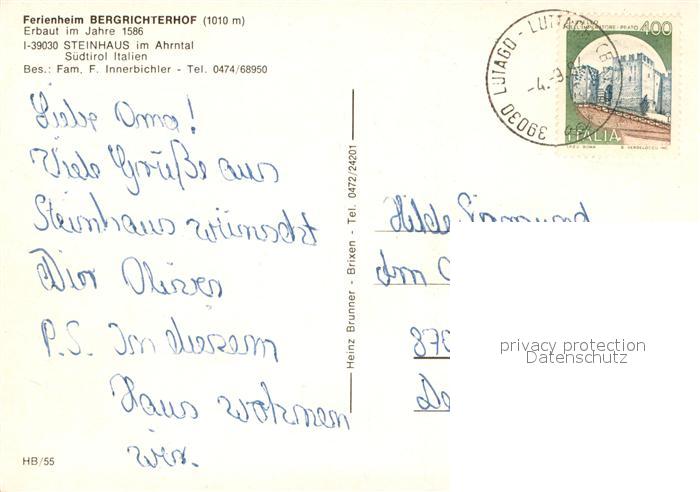 Ferienheim BERGRICHTERHOF (1010 m)
Erbaut im Jahre 1586
I-39030 STEINHAUS im Ahrntal
Südtirol Italien
Bes.: Fam. F. Innerbichler - Tel. 0474/68950
Liebe Oma!
Viele Grüße aus
Steinhaus wünscht
Dir Oliver
P.S. In diesem
Haus wohnen
wir.
HB/55
Heinz Brunner - Brixen - Tel. 0472/24201
39030 LUTAGO - LUTTACH
-4.-9.
400
ITALIA
Hilde
Am
870
De
privacy protection
Datenschutz